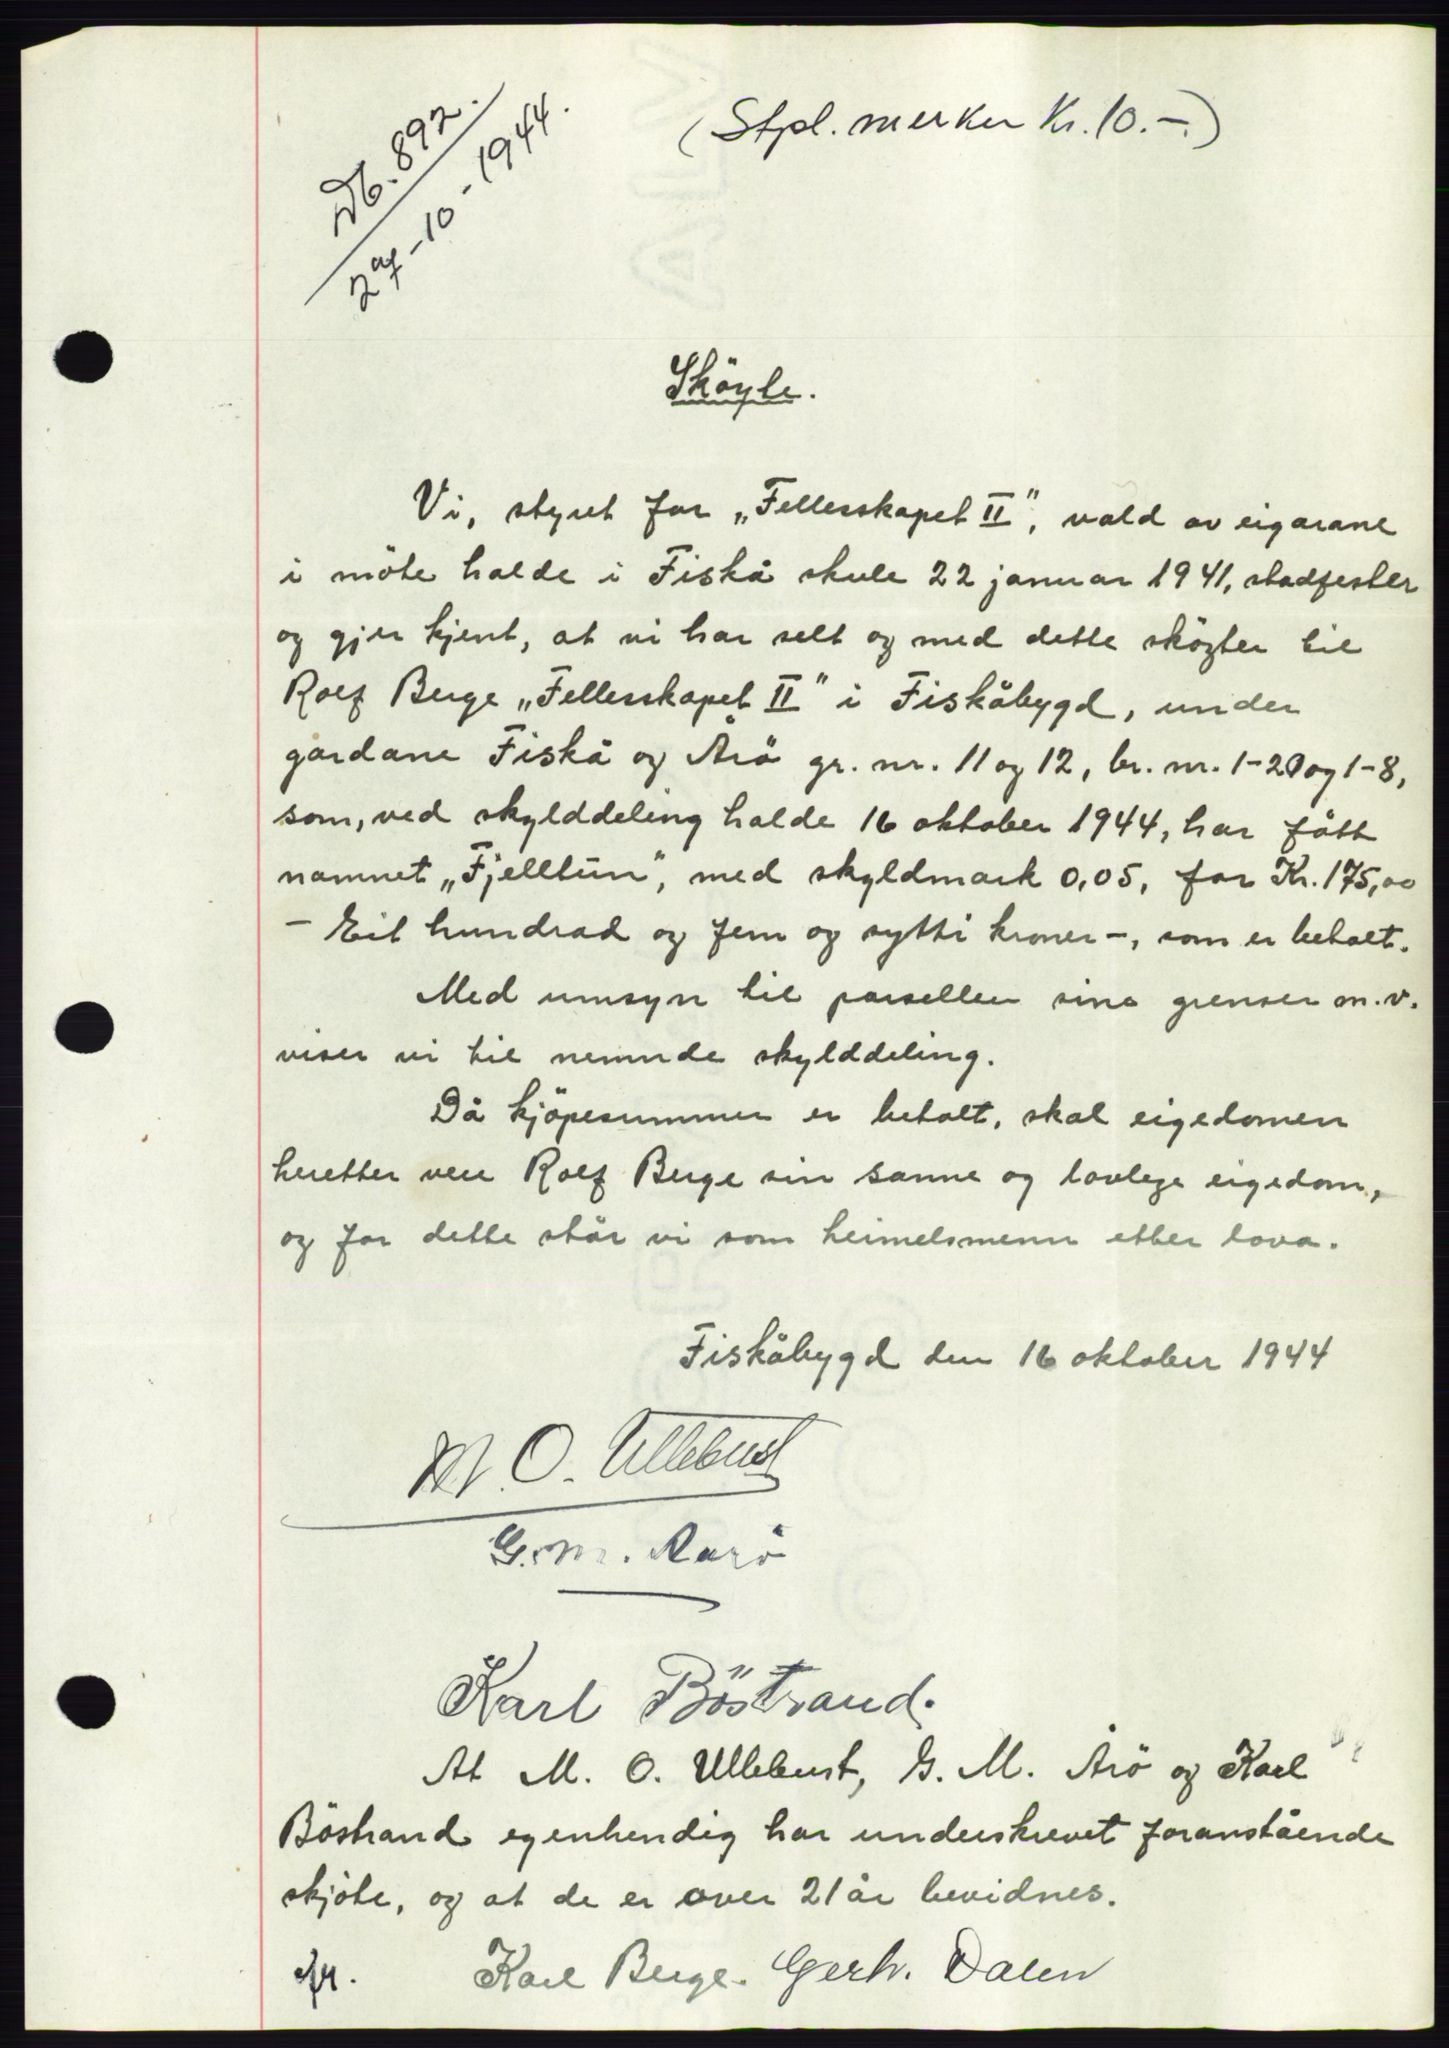 Db. 892.
27-10-1944.
(Stpl. merker Kr. 10.-.)
Sköyte.
Vi, styret for „Fellesskapet II", vald av eigarane
i möte halde i Fiskå skule 22 januar 1941, stadfester
og gjer kjent, at vi har selt og med dette sköyter til
Rolf Berge „Fellesskapet II" i Fiskåbygd, under
gardane Fiskå og Årö gr. nr. 11 og 12, br. nr. 1-20 og 1-8,
som, ved skylddeling halde 16 oktober 1944, har fått
namnet „Fjelltun", med skyldmark 0,05, for Kr. 175,00
- Eit hundrad og fem og sytti kroner -, som er betalt.
Med umsyn til parsellen sine grenser m.v.
viser vi til nemnde skylddeling.
Då kjöpesummen er betalt, skal eigedomen
heretter vere Rolf Berge sin sanne og lovlege eigedom,
og for dette står vi som heimelsmenn etter lova.
Fiskåbygd den 16 oktober 1944
M. O. Ullebust
G. M. Aarö
Karl Böstrand.
At M. O. Ullebust, G. M. Årö og Karl
Böstrand egenhendig har underskrevet foranstående
skjöte, og at de er over 21 år bevidnes.
Karl Berge. Gerh. Dalen